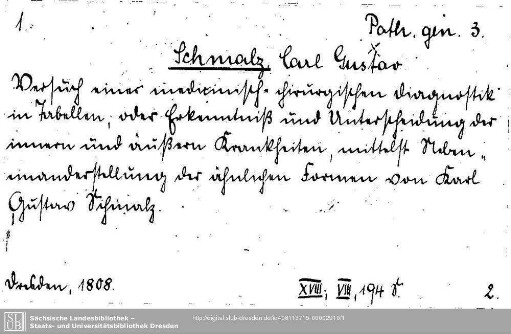 1.
Path. gen. 3.
Schmalz, Carl Gustav
Versuch einer medicinisch-chirurgischen Diagnostik
in Tabellen, oder Erkenntniß und Unterscheidung der
innern und äußern Krankheiten, mittelst Neben„
einanderstellung der ähnlichen Formen von Karl
Gustav Schmalz.
Dresden, 1808.
XVIII; VIII, 194 S.
2.
Sächsische Landesbibliothek –
Staats- und Universitätsbibliothek Dresden